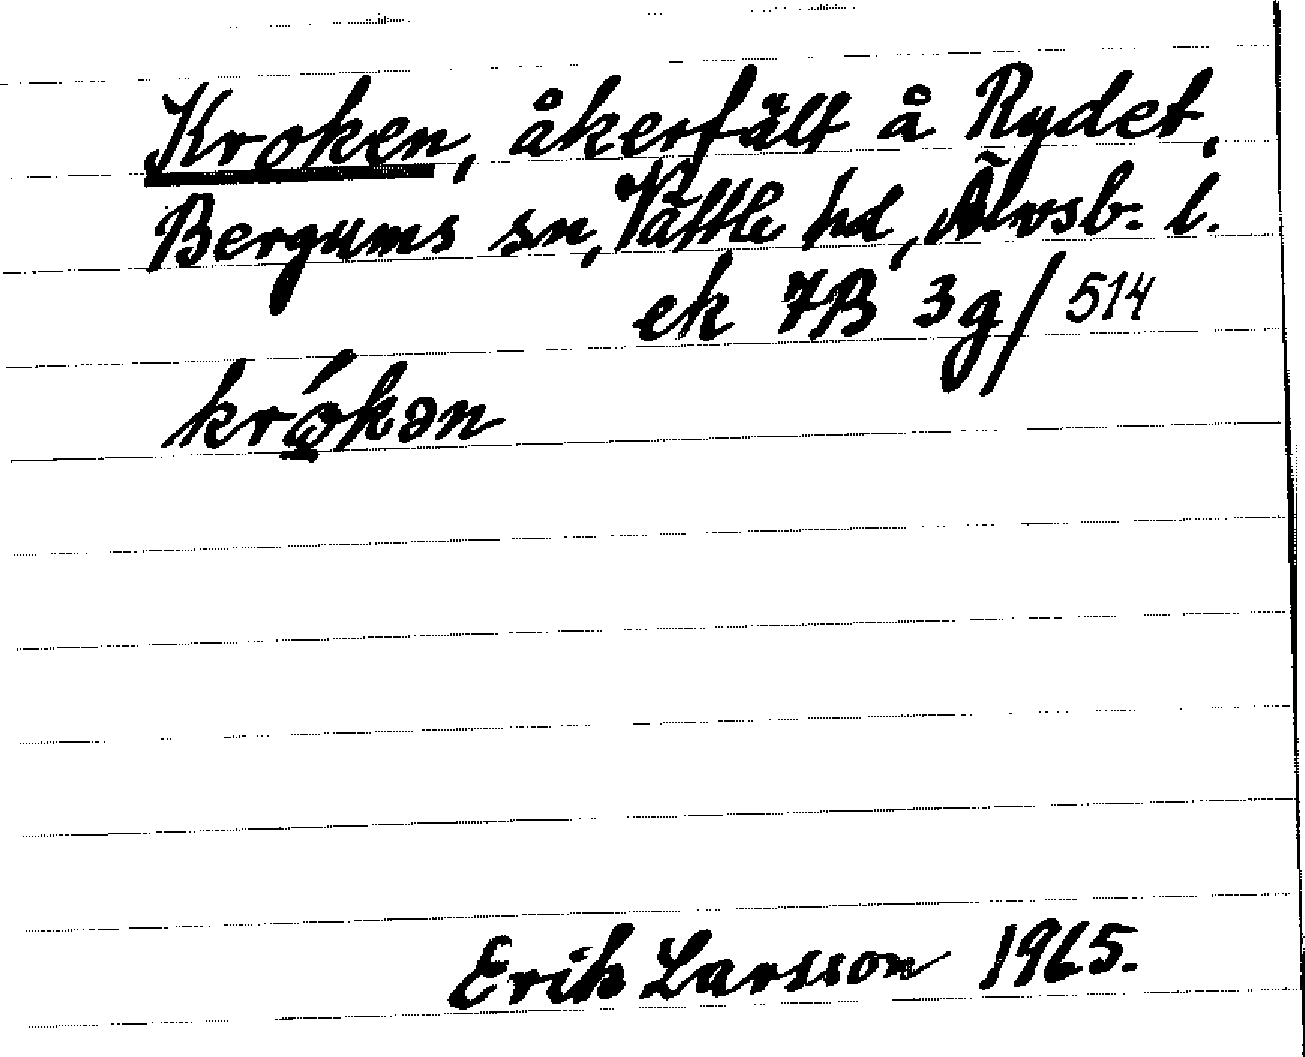 Kroken, åkerfält å Rydet,
Bergums sn, Vättle hd, Älvsb. l.
ek 7B 3g/514
krǫ́kən
Erik Larsson 1965.